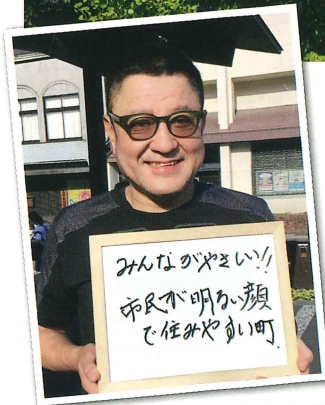 みんながやさしい!!
市民が明るい顔
で住みやすい町.